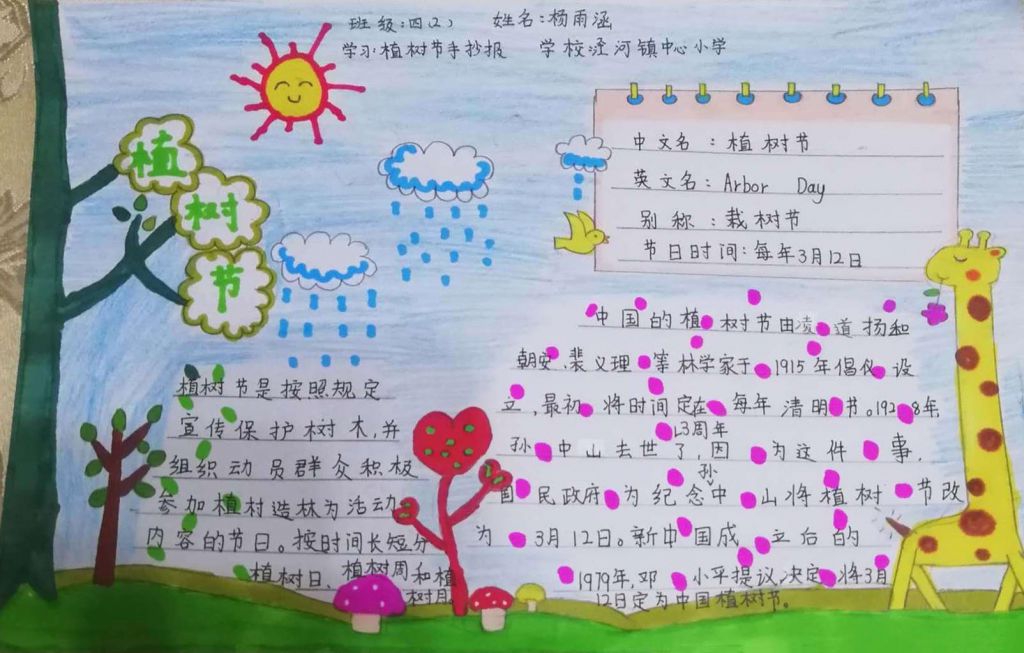 班级:四(2) 姓名:杨雨涵
学习:植树节手抄报 学校:泾河镇中心小学
植
树
节
中文名：植树节
英文名：Arbor Day
别称：栽树节
节日时间：每年3月12日
植树节是按照规定
宣传保护树木,并
组织动员群众积极
参加植村造林为活动
内容的节日。按时间长短分
植树日、植树周和植
树月。
中国的植树节由凌道扬和
朝安、裴义理等林学家于1915年倡仪设
立,最初将时间定在每年清明节。1928年
孙中山去世了3周年,因为这件事,
国民政府为纪念孙中山将植树节改
为3月12日。新中国成立后的
1979年,邓小平提议决定将3月
12日定为中国植树节。